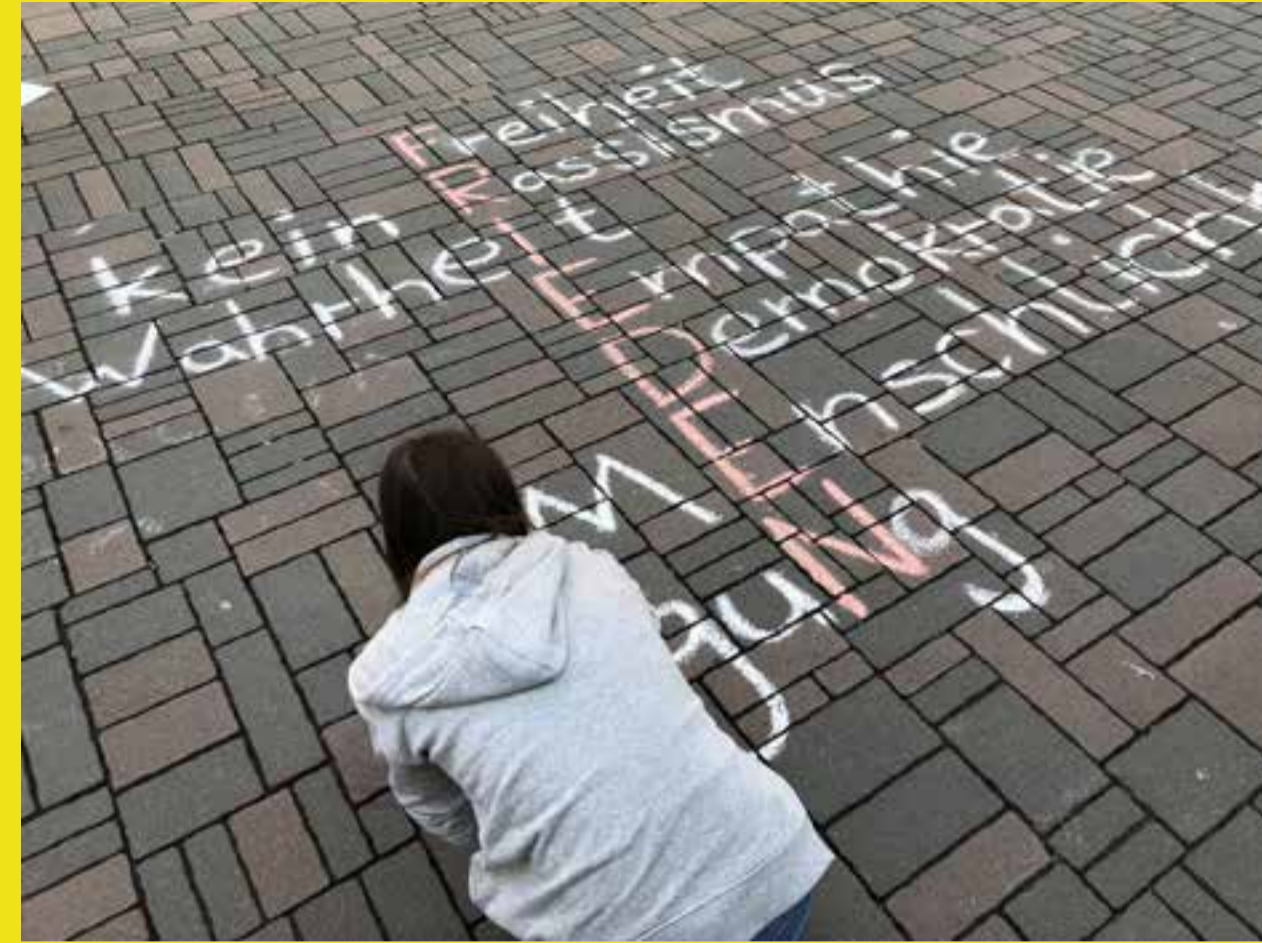 Freiheit
kein Rassismus
WahrheIt
Empathie
Demokratie
MEnschlichk
guNg